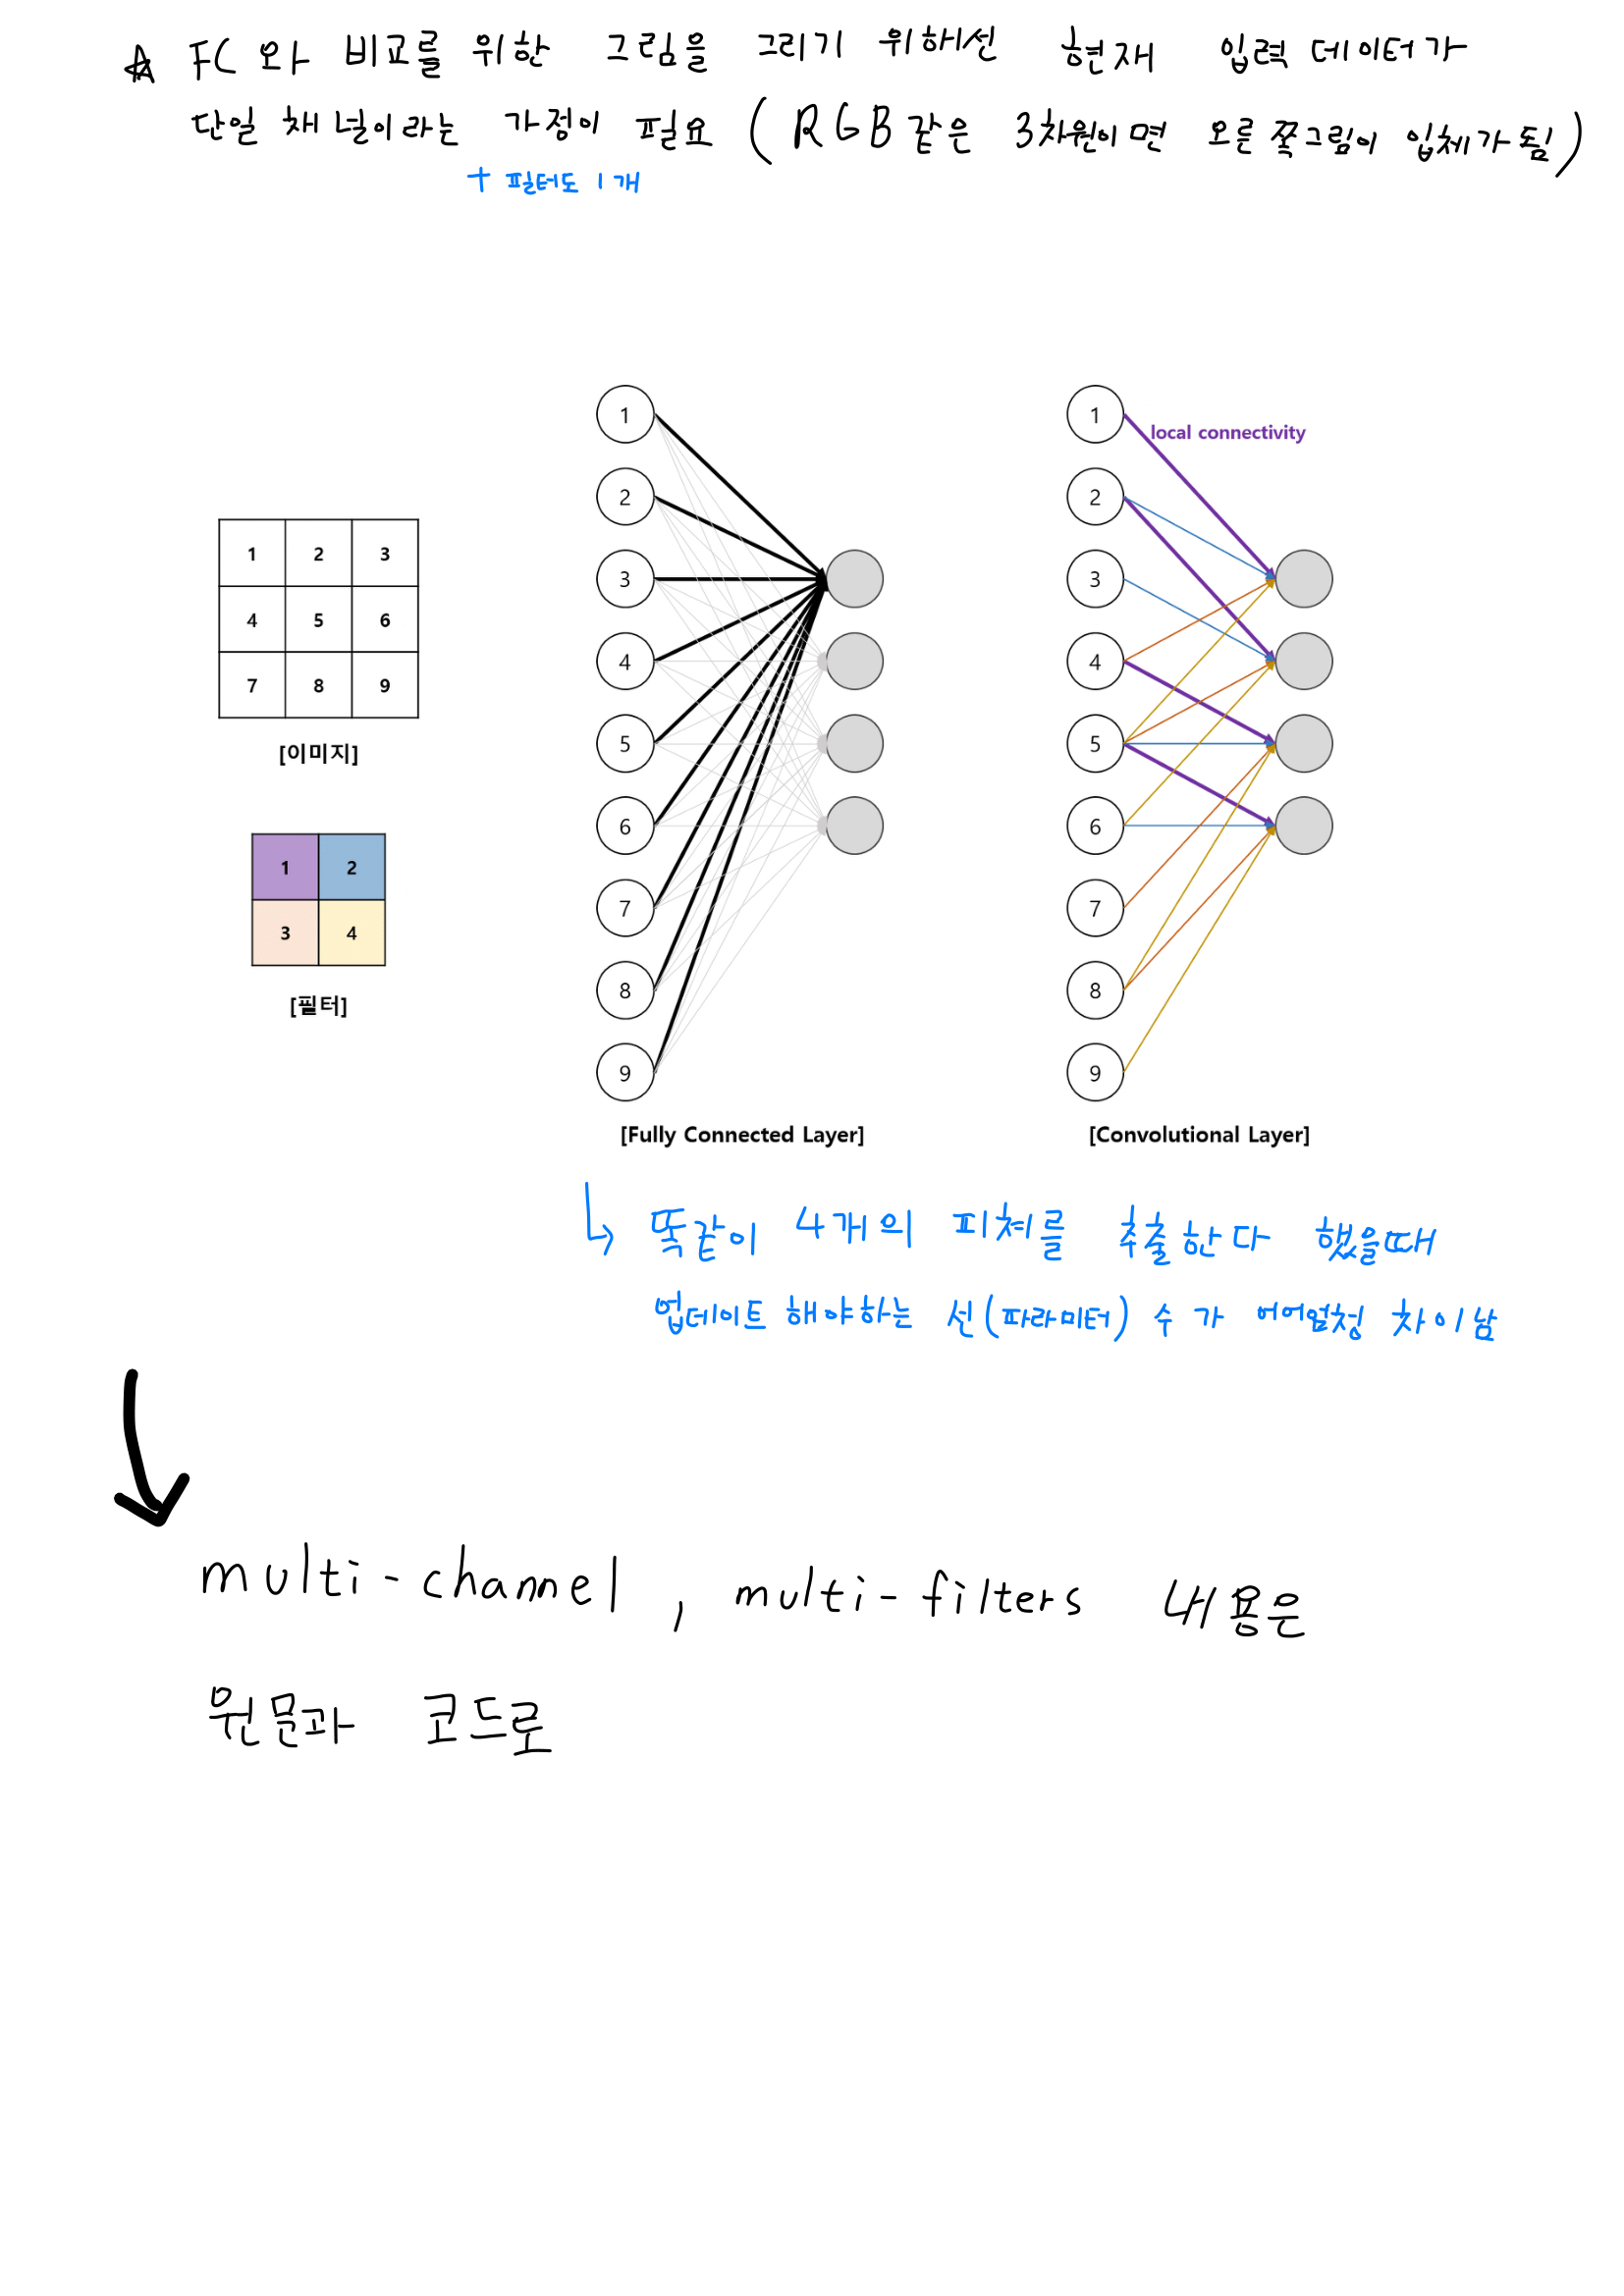 ☆ FC와 비교를 위한 그림을 그리기 위해선 현재 입력 데이터가
단일 채널이라는 가정이 필요 (RGB같은 3차원이면 오른쪽그림이 입체가됨)
+ 필터도 1개
1 2 3
4 5 6
7 8 9
[이미지]
1 2
3 4
[필터]
1
2
3
4
5
6
7
8
9
[Fully Connected Layer]
local connectivity
1
2
3
4
5
6
7
8
9
[Convolutional Layer]
↳ 똑같이 4개의 피쳐를 추출한다 했을때
업데이트 해야하는 선(파라미터) 수가 어어엄청 차이남
multi-channel, multi-filters 내용은
원문과 코드로